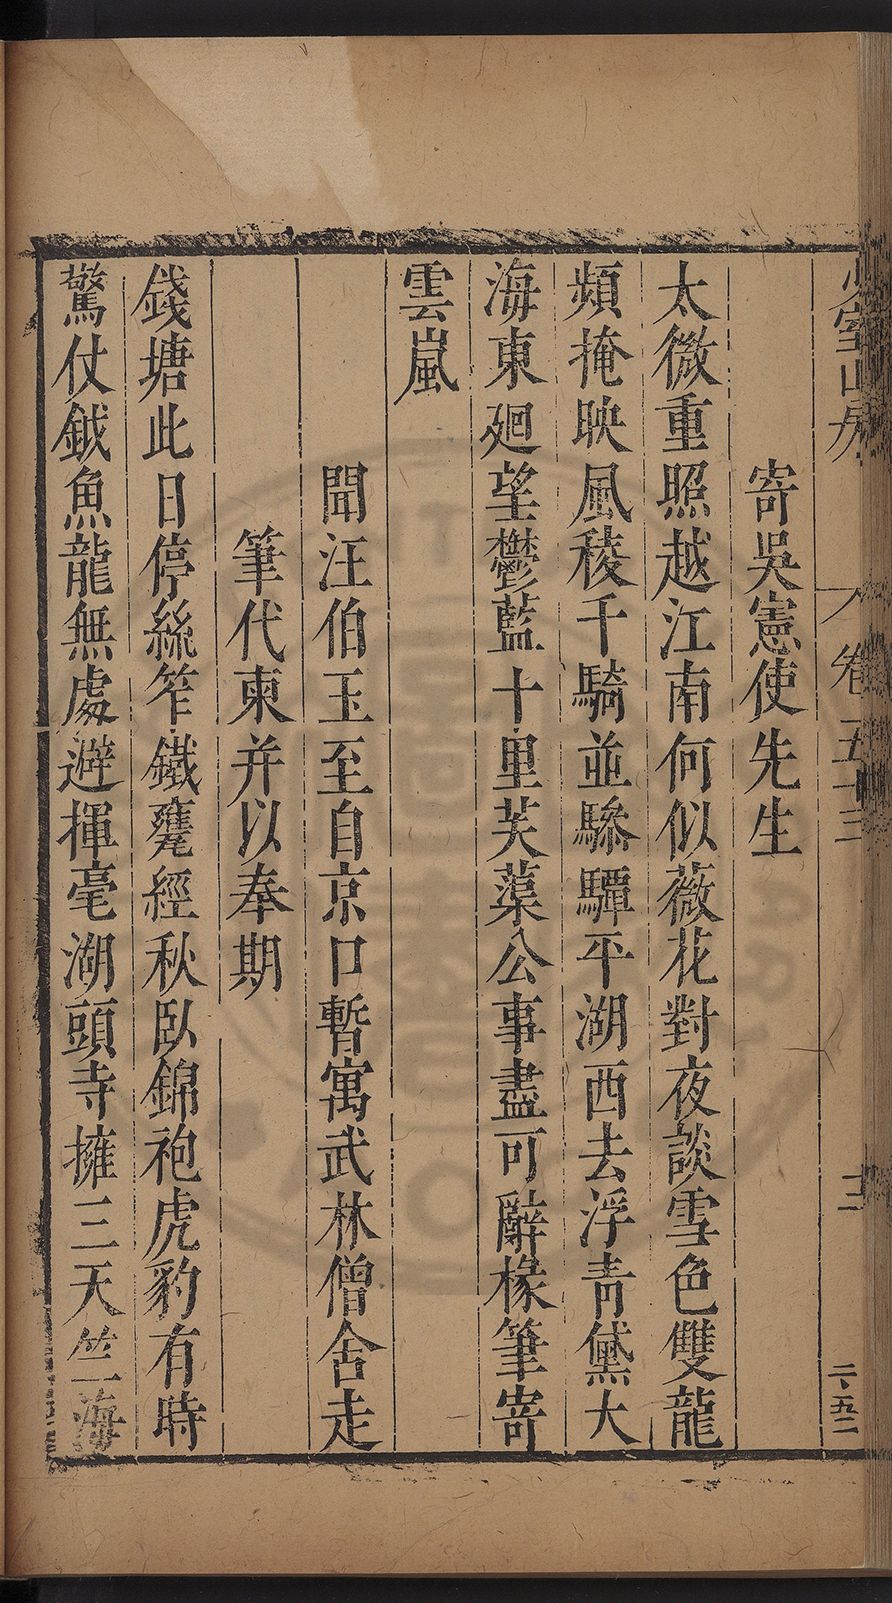 少室山房
卷五十三
三
二、五二
寄吳憲使先生
太微重照越江南何似薇花對夜談雪色雙龍
頻掩映風稜千騎並驂驔平湖西去浮青黛大
海東廻望鬱藍十里芙蕖公事盡可辭椽筆嵜
雲嵐
聞汪伯玉至自京口暫寓武林僧舍走
筆代柬并以奉期
錢塘此日停絲筰鐵甕經秋臥錦袍虎豹有時
驚仗鉞魚龍無處避揮毫湖頭寺擁三天竺海